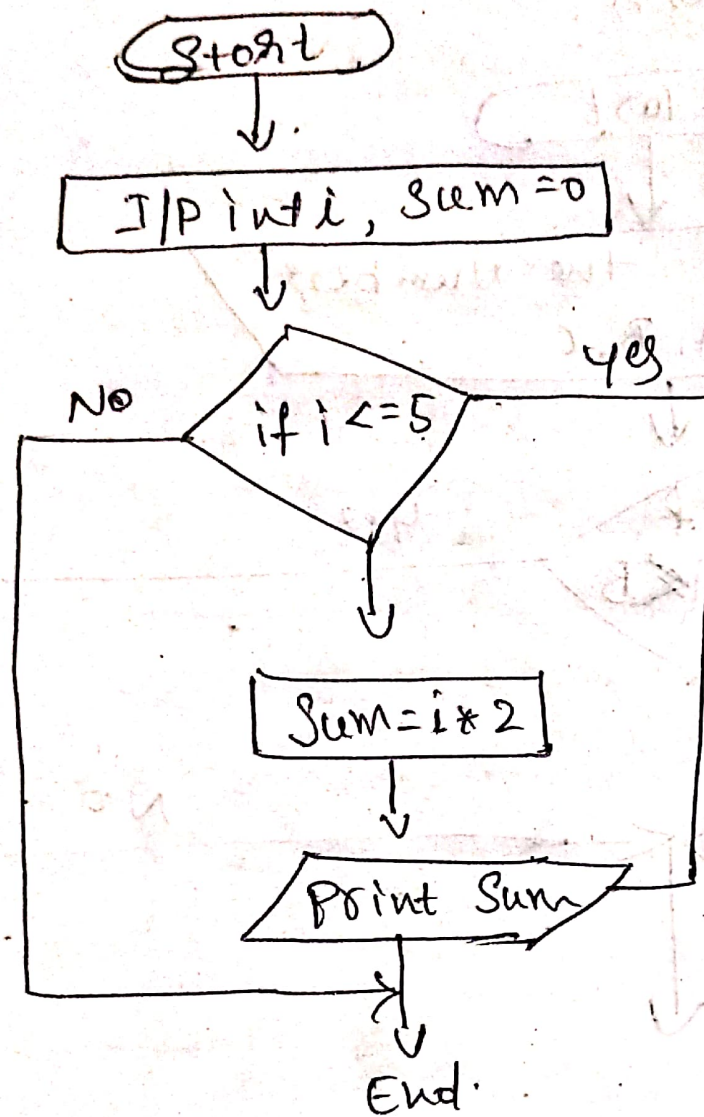 Start
I/P int i, Sum=0
if i <=5
Yes
No
Sum=i*2
Print Sum
End.